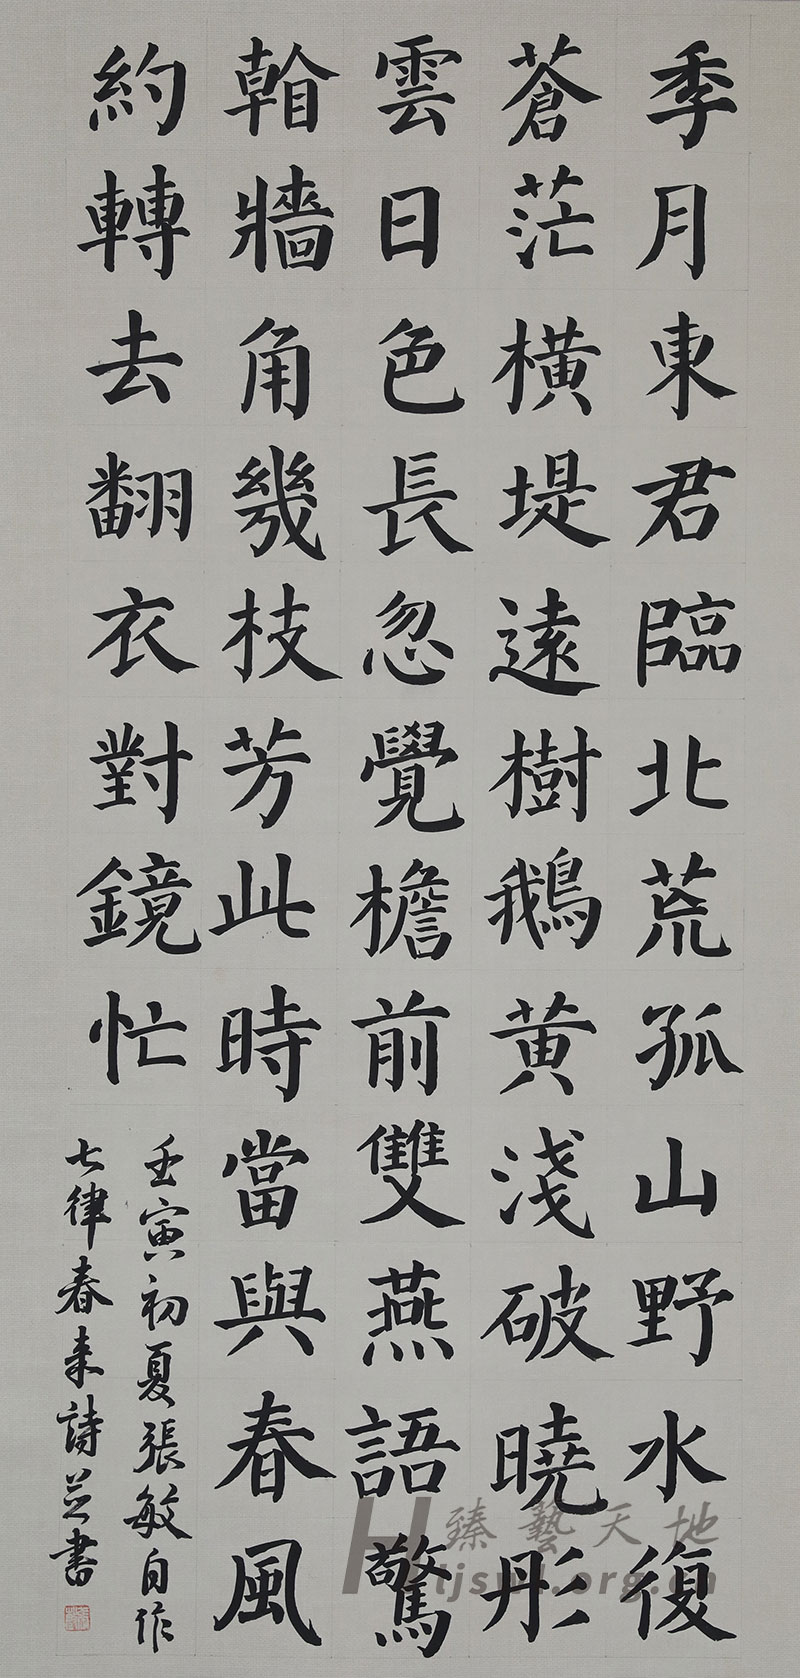 季月東君臨北荒孤山野水復
蒼茫橫堤遠樹鵝黃淺破曉彤
雲日色長忽覺檐前雙燕語驚
牆角幾枝芳此時當與春風
約轉去翻衣對鏡忙
壬寅初夏張敏自作
七律春来詩並書
臻藝天地